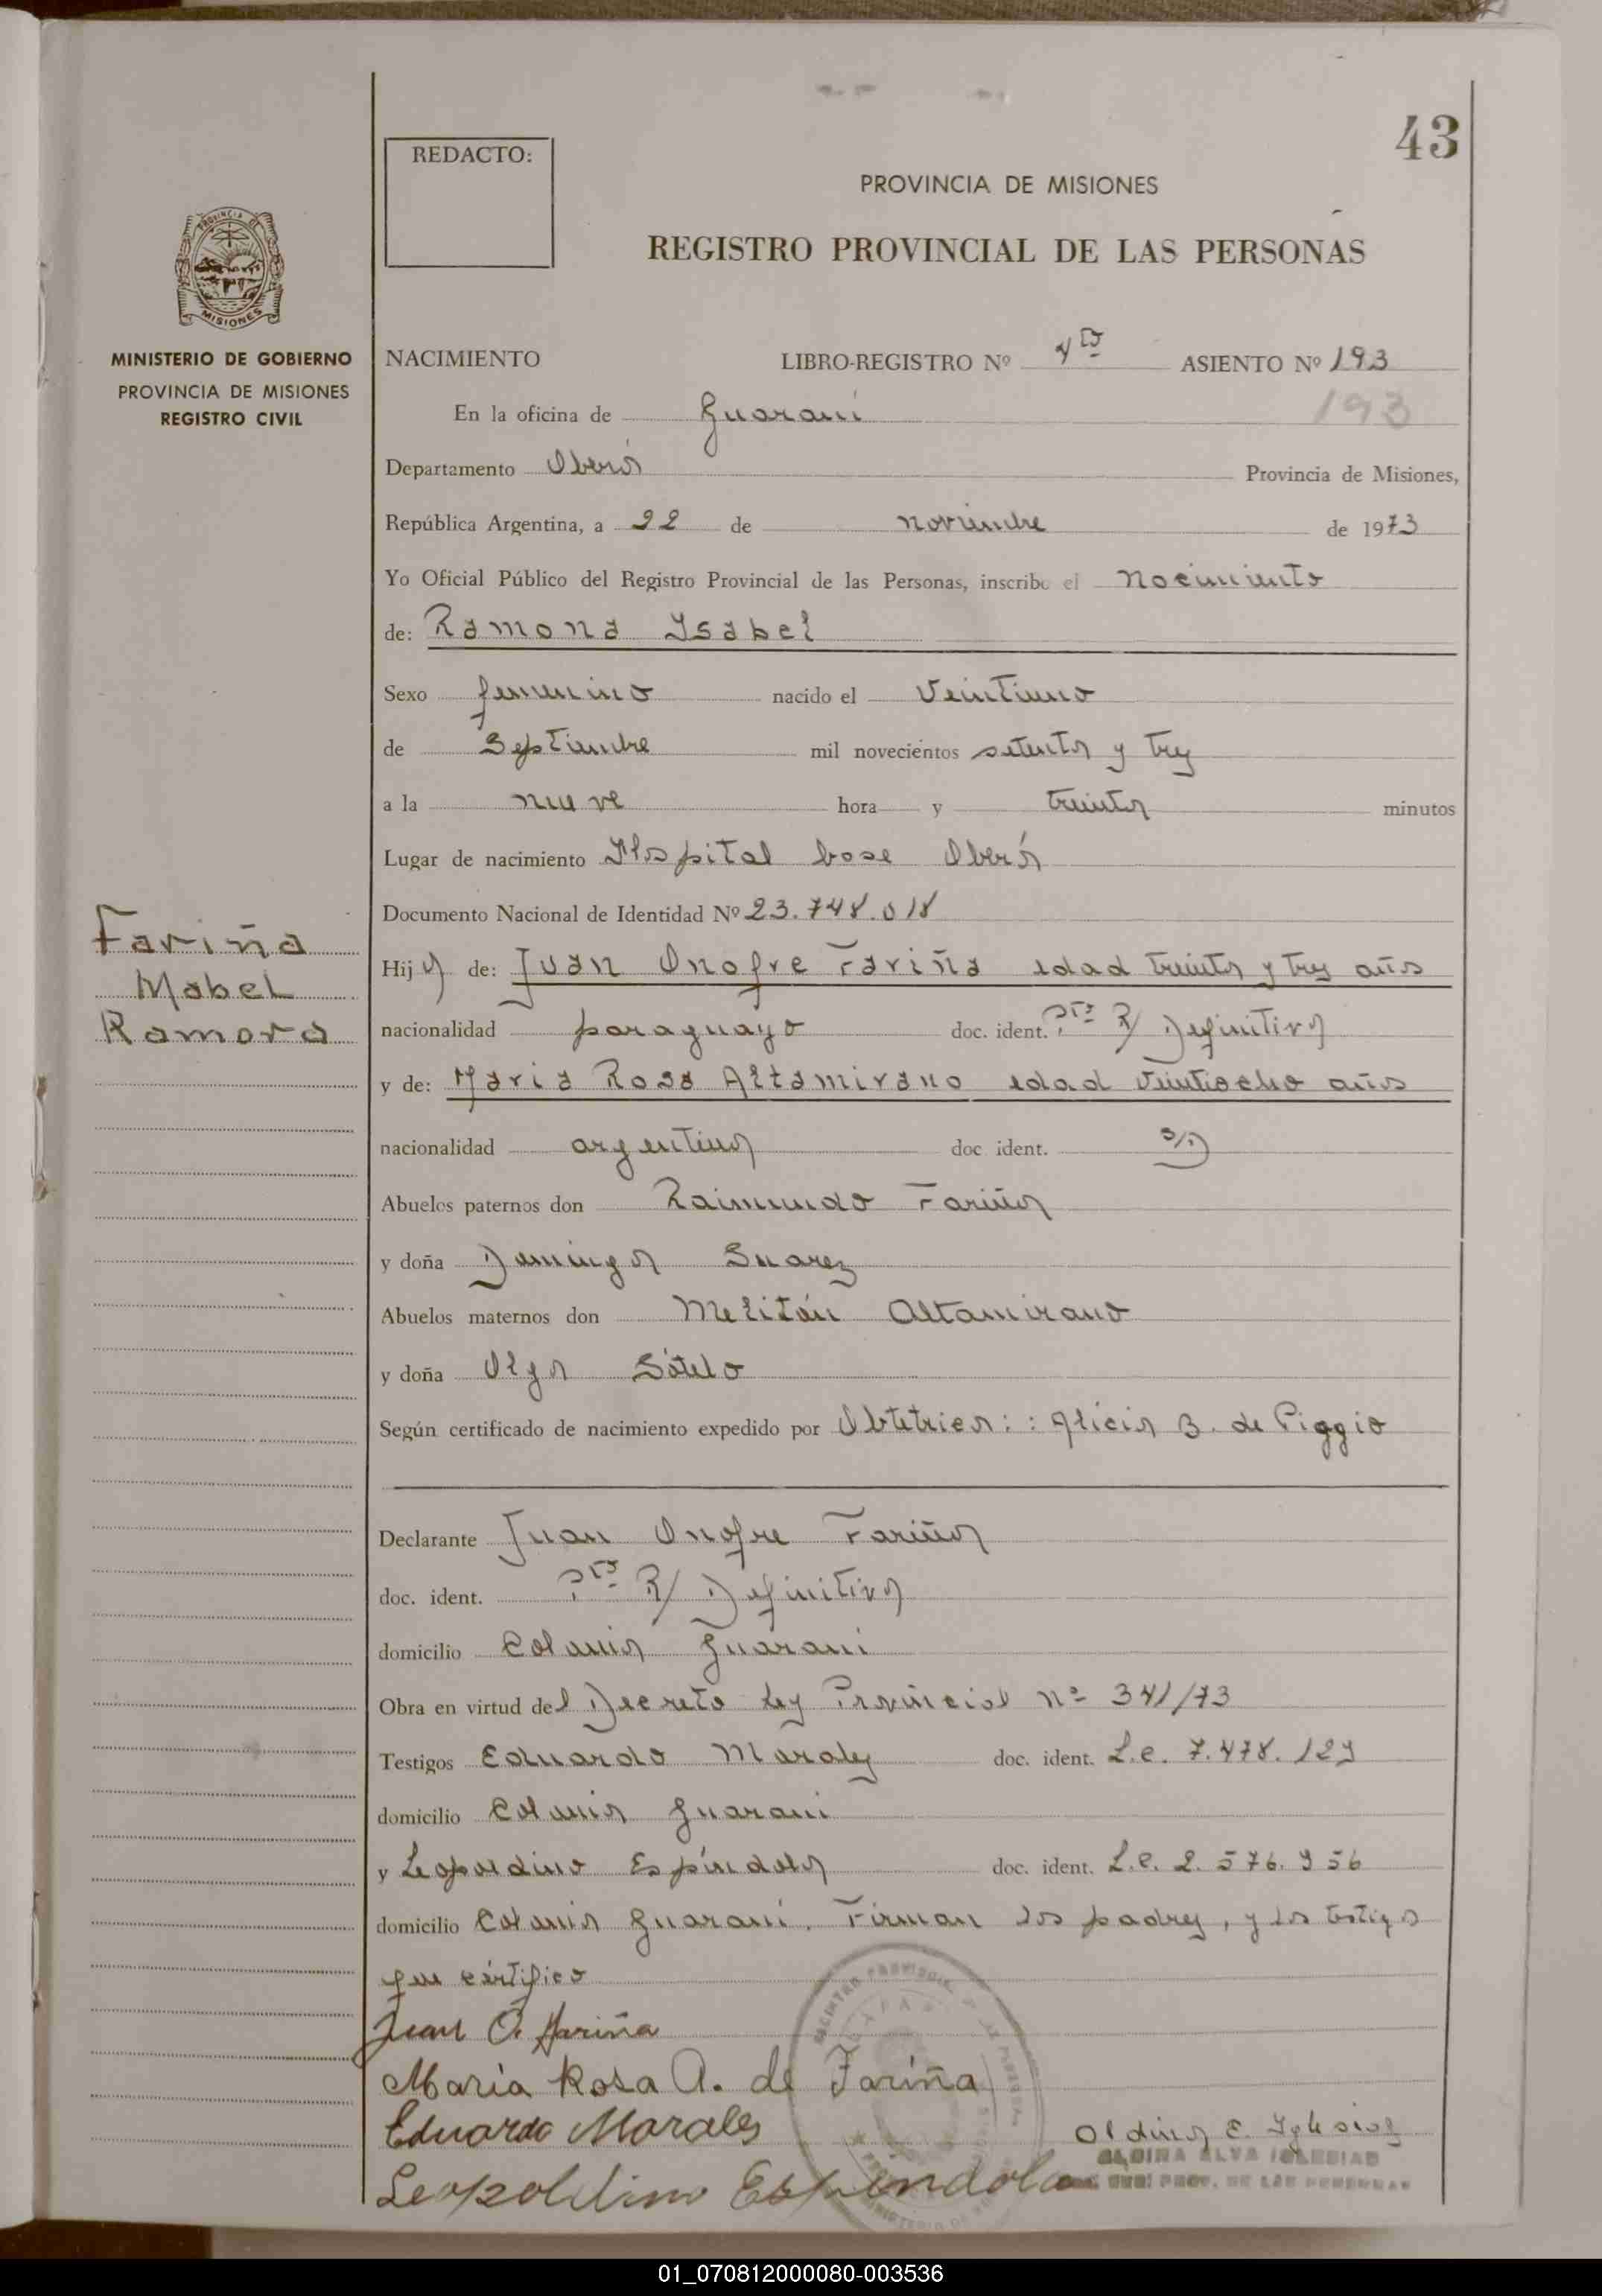 43
REDACTO:
PROVINCIA DE MISIONES
REGISTRO PROVINCIAL DE LAS PERSONAS
PROVINCIA DE
MISIONES
MINISTERIO DE GOBIERNO
PROVINCIA DE MISIONES
REGISTRO CIVIL
NACIMIENTO LIBRO-REGISTRO Nº 4to ASIENTO Nº 193
En la oficina de Guaraní 193
Departamento Oberá Provincia de Misiones,
República Argentina, a 22 de noviembre de 1973
Yo Oficial Público del Registro Provincial de las Personas, inscribo el Nacimiento
de: Ramona Isabel
Sexo femenino nacido el Veintiuno
de Septiembre mil novecientos setenta y tres
a la nueve hora y treinta minutos
Lugar de nacimiento Hospital base Oberá
Documento Nacional de Identidad Nº 23.748.018
Fariña
Mabel
Ramona
Hija de: Juan Onofre Fariña edad treinta y tres años
nacionalidad paraguayo doc. ident. Pto R/ Definitiva
y de: Maria Rosa Altamirano edad veintiocho años
nacionalidad argentina doc ident. s/D
Abuelos paternos don Raimundo Fariña
y doña Dominga Suarez
Abuelos maternos don Melitón Altamirano
y doña Olga Sótelo
Según certificado de nacimiento expedido por Obtetrica: : Alicia B. de Piggio
Declarante Juan Onofre Fariña
doc. ident. Pto R/ Definitiva
domicilio Colonia Guaraní
Obra en virtud del Decreto Ley Provincial nº 341/73
Testigos Eduardo Morales doc. ident. L.e. 7.478.129
domicilio Colonia Guaraní
y Leopoldino Espíndola doc. ident. L.e. 2.576.956
domicilio Colonia Guaraní. Firman los padres, y los testigos
que cértifico
Juan O. Fariña
María Rosa A. de Fariña
Eduardo Morales
Oldina E. Iglesias
OLDINA ELVA IGLESIAS
Leopoldino Espíndola
01_070812000080-003536